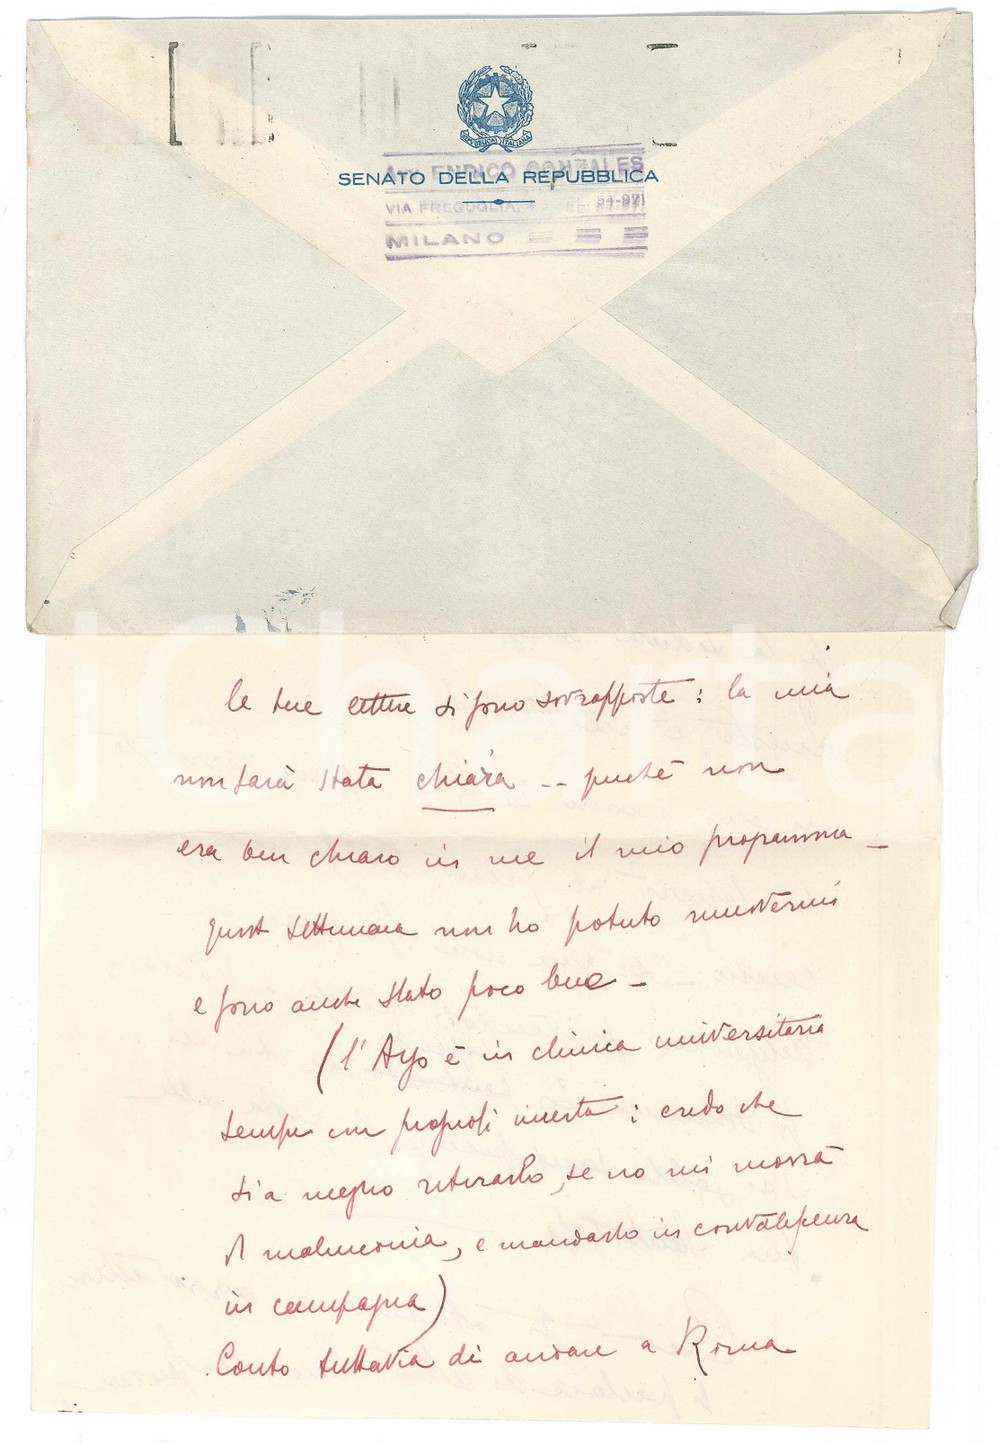 REPUBBLICA ITALIANA
SENATO DELLA REPUBBLICA
Avv. ENRICO GONZALES
VIA FREGUGLIA, 54-971
MILANO
iCharta
le due lettere si sono sovrapposte: la mia
non sarà stata chiara -- perché non
era ben chiaro in me il mio programma -
quest settimana non ho potuto muovermi
e sono anche stato poco bene -
(l' Ayo è in clinica universitaria
sempre con prognosi incerta: credo che
sia meglio ritirarlo, se no mi morrà
di malinconia, e mandarlo in convalescenza
in campagna)
Conto tuttavia di andare a Roma